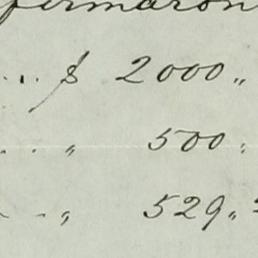 firmaron
... $ 2000 "
. . " 500 .
. . " 529 "